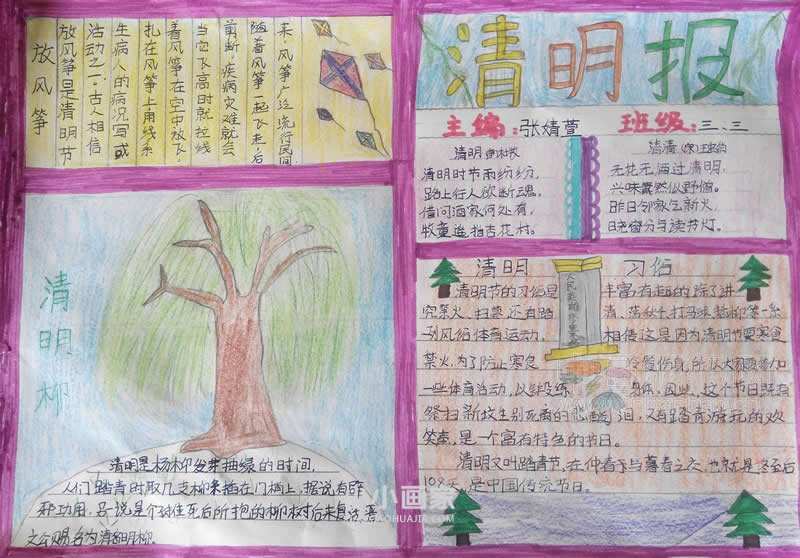 清明报
主编：张婧萱 班级：三、三
清明 唐·杜牧
清明时节雨纷纷，
路上行人欲断魂，
借问酒家何处有，
牧童遥指杏花村。
清清（宋）王
无花无酒过清明，
兴味萧然似野僧。
昨日邻家乞新火，
晓窗分与读书灯。
放风筝
放风筝是清明节
活动之一，古人相信
生病人的病况写或
扎在风筝上，用线系
着风筝在空中放飞，
当它飞高时就拉线
剪断，疾病灾难就会
随着风筝一起飞走，后
来，风筝广泛流行民间
清明柳
清明是杨柳发芽抽绿的时间，
人们踏青时取几支柳条插在门楣上，据说有辟
邪功用，另一说是介子推死后所抱的柳树后来复活，晋
文公赐名为清明柳。
清明 习俗
清明节的习俗是 丰富有趣的除了讲
究禁火、扫墓还有踏 清、荡秋千、打马球、插柳等一系
列风俗体育运动， 相传这是因为清明节要寒食
禁火，为了防止寒食 冷餐伤身，所以大家要参加
一些体育活动，以锻炼 身体，因此，这个节日既有
祭扫新坟生别死离的悲酸泪，又有踏青游玩的欢
笑声，是一个富有特色的节日。
清明又叫踏青节，在仲春与暮春之交，也就是冬至后
108天，是中国传统节日。
人民英雄
小画家
XIAOHUAJIA.COM